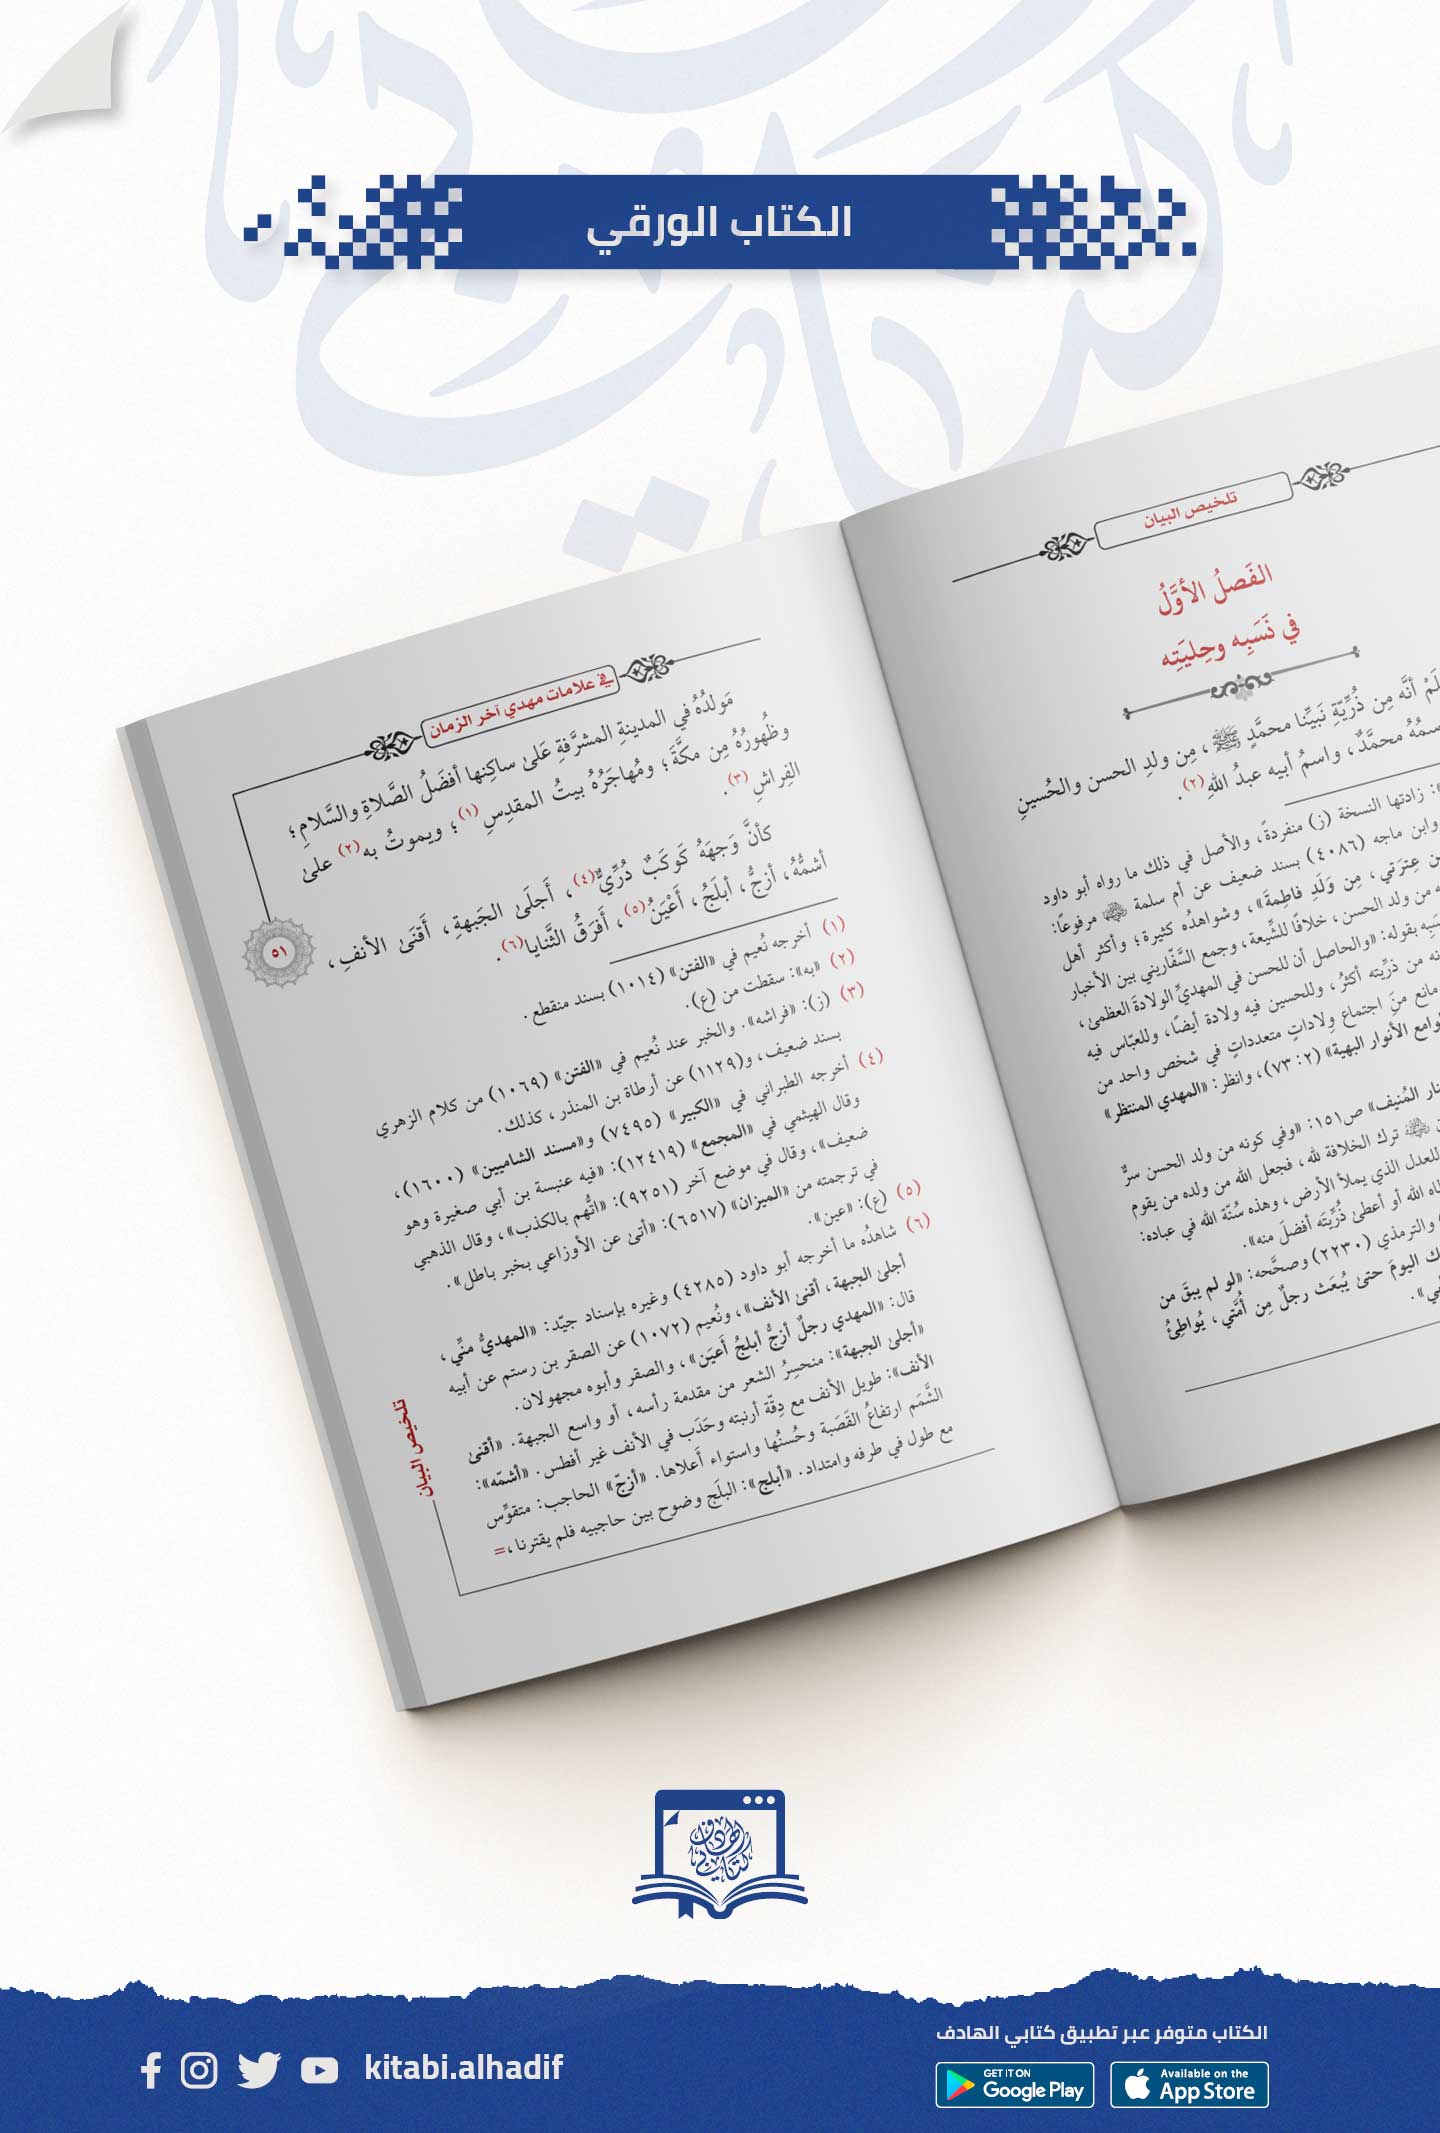 الكتاب الورقي
تلخيص البيان
الفَصلُ الأوَّلُ
في نَسَبِه وحِليَتِه
أنَّه مِن ذُرِّيَّةِ نَبيِّنا محمَّدٍ ﷺ، مِن ولدِ الحسن والحُسينِ
محمَّدٌ، واسمُ أبيه عبدُ اللهِ(٢).
زادتها النسخة (ز) منفردةً، والأصل في ذلك ما رواه أبو داود
وابن ماجه (٤٠٨٦) بسند ضعيف عن أم سلمة مرفوعًا:
عِترَتي، مِن وَلَدِ فاطِمةَ»، وشواهدُه كثيرة؛ وأكثر أهل
من ولد الحسن، خلافًا للشِّيعة، وجمع السَّفّاريني بين الأخبار
بقوله: «والحاصل أن للحسن في المهديِّ الولادةَ العظمىٰ،
من ذرِّيته أكثرُ، وللحسين فيه ولادة أيضًا، وللعبّاس فيه
مانع منَ اجتماع وِلاداتٍ متعدداتٍ في شخص واحد من
الأنوار البهية» (٢: ٧٣)، وانظر: «المهدي المنتظر»
المُنيف» ص١٥١: «وفي كونه من ولد الحسن سرٌّ
ترك الخلافة لله، فجعل الله من ولده من يقوم
للعدل الذي يملأ الأرض، وهذه سُنّة الله في عباده:
الله أو أعطىٰ ذُرِّيَّتَه أفضلَ منه».
والترمذي (٢٢٣٠) وصحَّحه: «لو لم يبقَ من
اليومَ حتىٰ يُبعَث رجلٌ مِن أُمَّتي، يُواطِئُ
في علامات مهدي آخر الزمان
مَولدُهُ في المدينةِ المشرَّفةِ عَلىٰ ساكِنها أفضَلُ الصَّلاةِ والسَّلامِ؛
وظُهورُهُ مِن مكَّةَ؛ ومُهاجَرُهُ بيتُ المقدِسِ(١)؛ ويموتُ به(٢) علىٰ
الفِراشِ(٣).
كأنَّ وَجهَهُ كَوكَبٌ دُرِّيٌّ(٤)، أَجلَىٰ الجَبهةِ، أَقنَىٰ الأنفِ،
أشمُّهُ، أزجُّ، أبلَجُ، أَعْيَنُ(٥)، أَفرَقُ الثَّنايا(٦).
٥١
(١) أخرجه نُعيم في «الفتن» (١٠١٤) بسند منقطع.
(٢) «به»: سقطت من (ع).
(٣) (ز): «فراشه». والخبر عند نُعيم في «الفتن» (١٠٦٩) من كلام الزهري
بسند ضعيف، و(١١٢٩) عن أرطاة بن المنذر، كذلك.
(٤) أخرجه الطبراني في «الكبير» (٧٤٩٥) و«مسند الشاميين» (١٦٠٠)،
وقال الهيثمي في «المجمع» (١٢٤١٩): «فيه عنبسة بن أبي صغيرة وهو
ضعيف»، وقال في موضع آخر (٩٢٥١): «اتُّهم بالكذب»، وقال الذهبي
في ترجمته من «الميزان» (٦٥١٧): «أتىٰ عن الأوزاعي بخبر باطل».
(٥) (ع): «عين».
(٦) شاهدُه ما أخرجه أبو داود (٤٢٨٥) وغيره بإسناد جيّد: «المهديُّ منِّي،
أجلىٰ الجبهة، أقنىٰ الأنف»، ونُعيم (١٠٧٢) عن الصقر بن رستم عن أبيه
قال: «المهدي رجلٌ أزجُّ أبلجُ أعيَن»، والصقر وأبوه مجهولان.
«أجلىٰ الجبهة»: منحسِرُ الشعر من مقدمة رأسه، أو واسع الجبهة. «أقنىٰ
الأنف»: طويل الأنف مع دِقّة أرنبته وحَدَب في الأنف غير أفطس. «أشمّه»:
الشَّمَم ارتفاعُ القَصَبة وحُسنُها واستواء أعلاها. «أزجّ» الحاجب: متقوِّس
مع طول في طرفه وامتداد. «أبلج»: البلَج وضوح بين حاجبيه فلم يقترنا،=
تلخيص البيان
كتابي الهادف
الكتاب متوفر عبر تطبيق كتابي الهادف
kitabi.alhadif
GET IT ON
Google Play
Available on the
App Store